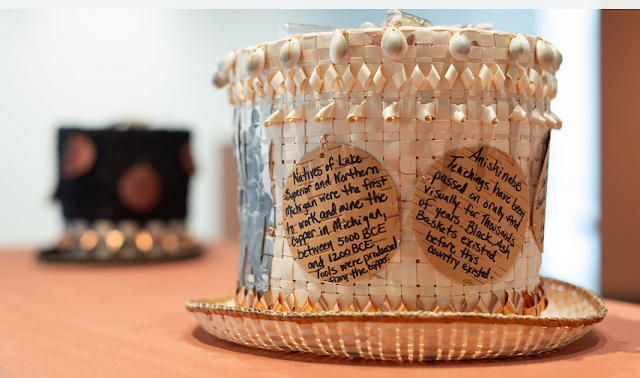 Natives of Lake
Superior and Northern
Michigan were the first
to work and mine the
Copper in Michigan,
between 5000 BCE
and 1200 BCE.
Tools were produced
from the copper.
Anishinabe
Teachings have been
passed on orally and
visually for Thousands
of years. Black Ash
Baskets existed
before this
country existed.